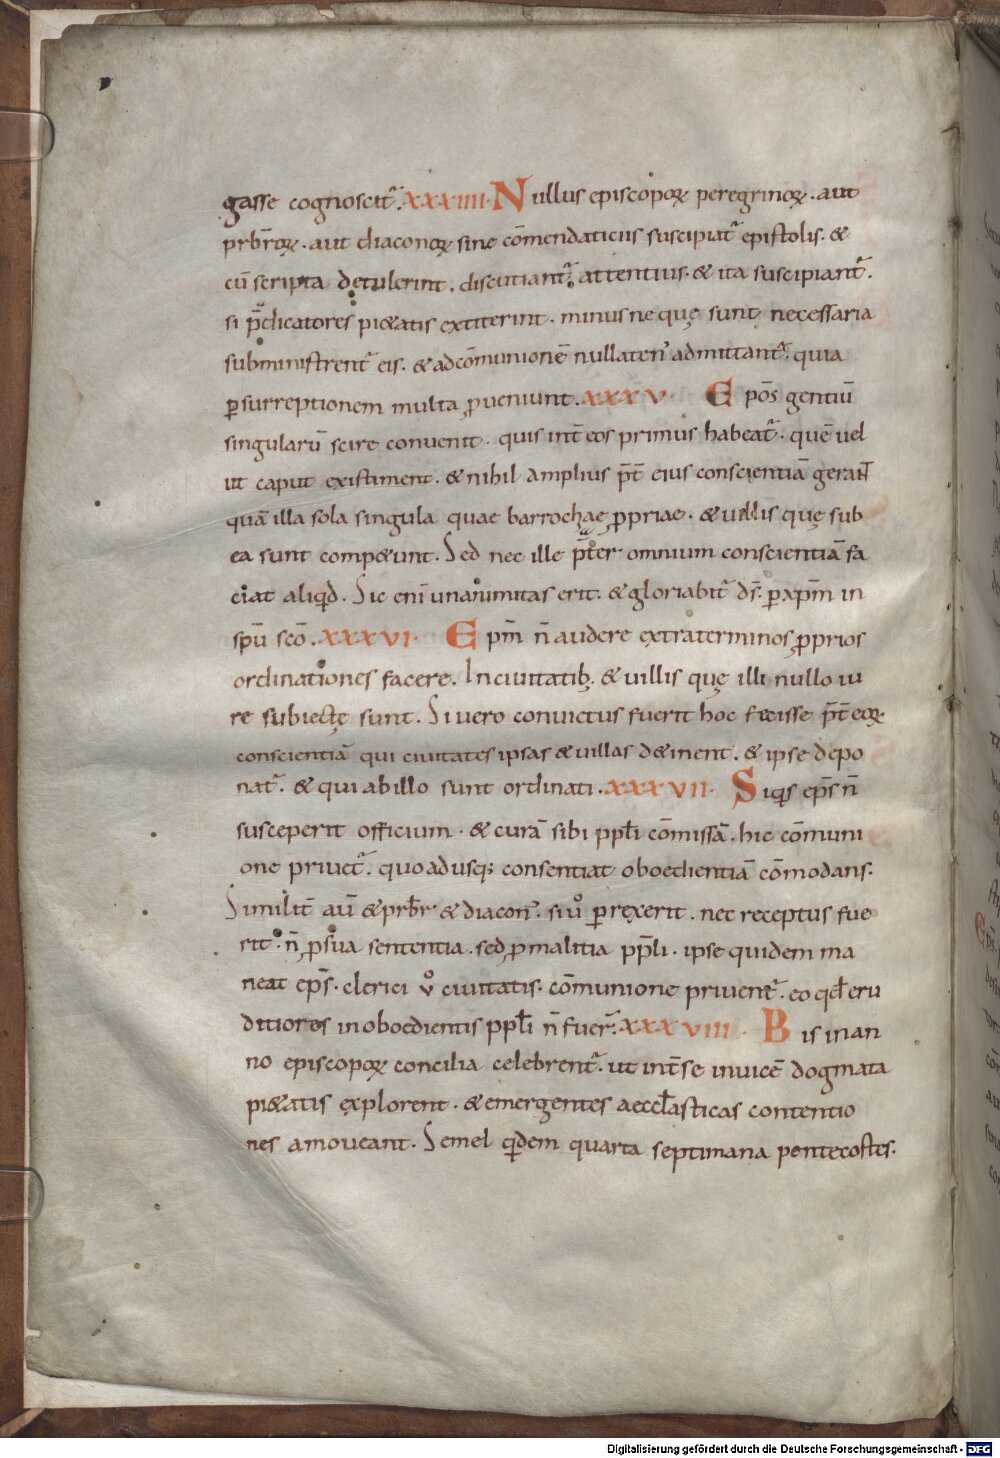 gasse cognoscit᷑. xxxiiii. Nullus episcoporꝝ peregrinorꝝ. aut
prb̄rorꝝ. aut diaconorꝝ sine cōmendaticiis suscipiat᷑ epistolis. &
cū scripta detulerint. discutiant᷑ attentius. & ita suscipiant᷑.
si p̄dicatores pi&atis extiterint. minus ne quę sunt necessaria
subministrent᷑ eis. & ad cōmunionē nullaten᷒ admittant᷑. quia
ꝑ surreptionem multa ꝓueniunt. xxxv. Epōs gentiū
singularū scire convenit. quis int̄ eos primus habeat᷑. quē vel
ut caput existiment. & nihil amplius p̄t eius conscientiā gerant
quā illa sola singula quae barrochae ꝓpriae. & uillis quę sub
ea sunt compe&unt. Sed nec ille p̄ter omnium conscientiā fa
ciat aliqd. Sic eni unanimitas erit. & gloriabit᷑ ds̄. ꝑ xpm̄ in
spū scō. xxxvi. Epm̄ n̄ audere extra terminos ꝓprios
ordinationes facere. In ciuitatib; & uillis quę illi nullo iu
re subiectę sunt. Si uero convictus fuerit hoc fecisse p̄t eorꝝ
conscientiā qui ciuitates ipsas & uillas d&inent. & ipse depo
nat᷑. & qui ab illo sunt ordinati. xxxvii. Siqs eps̄ n̄
susceperit officium. & curā sibi ppli cōmissā. hic cōmuni
one priuet᷑. quo adusq; consentiat oboedientiā cōmodans.
Similit̄ aū & prb̄r & diacon᷒. si ūo perrexerit. nec receptus fue
rit. n̄ ꝓ sua sententia. sed ꝓ malitia pp̄li. ipse quidem ma
neat eps̄. clerici ūo ciuitatis. cōmunione privent᷑. eo qđ eru
ditiores inoboedientis ppli n̄ fuer̄. xxxviii. Bis in an
no episcoporꝝ concilia celebrent᷑. ut int̄ se inuicē dogmata
pi&atis explorent. & emergentes aeccłasticas contentio
nes amoueant. Semel qdem quarta septimana pentecostes.
Digitalisierung gefördert durch die Deutsche Forschungsgemeinschaft - DFG